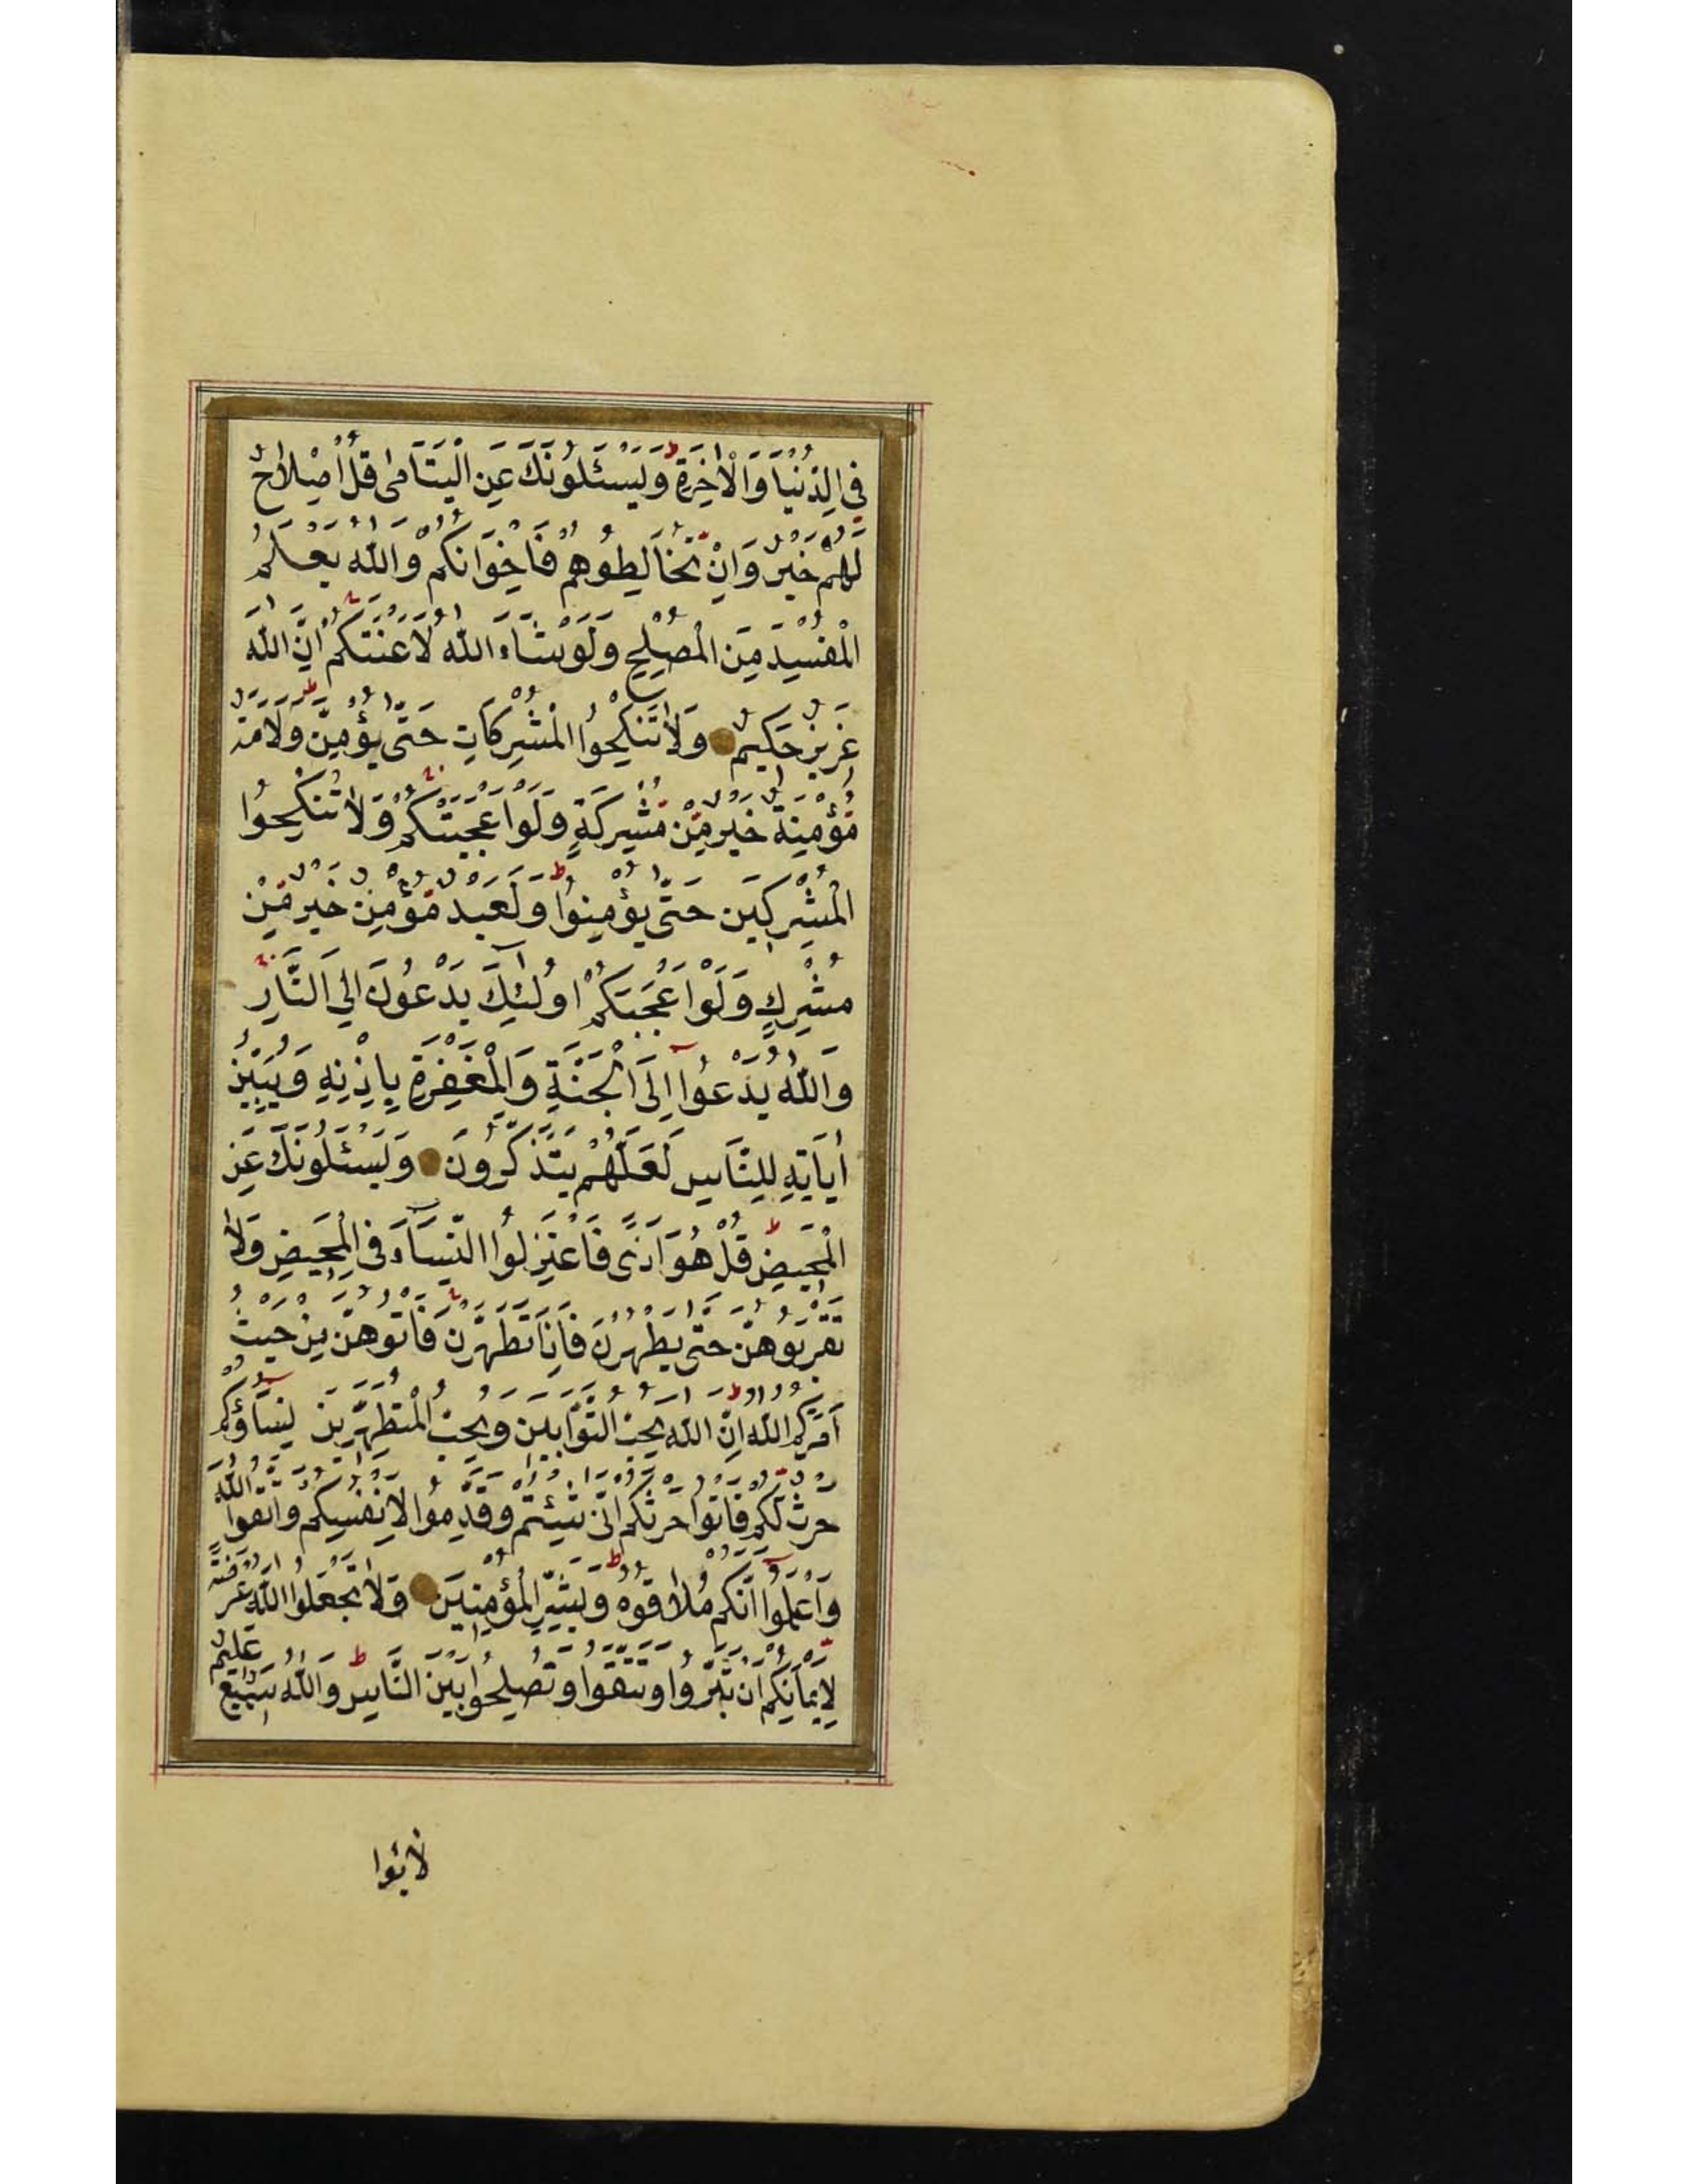 فِي الدُّنْيَا وَالْاٰخِرَةِ ط وَيَسْئَلُونَكَ عَنِ الْيَتَامٰى قُلْ اِصْلاَحٌ
لَهُمْ خَيْرٌ وَاِنْ تُخَالِطُوهُمْ فَاِخْوَانُكُمْ وَاللّٰهُ يَعْلَمُ
الْمُفْسِدَ مِنَ الْمُصْلِحِ وَلَوْ شَاءَ اللّٰهُ لَاَعْنَتَكُمْ اِنَّ اللّٰهَ
عَزِيزٌ حَكِيمٌ وَلَا تَنْكِحُوا الْمُشْرِكَاتِ حَتّٰى يُؤْمِنَّ ط وَلَاَمَةٌ
مُؤْمِنَةٌ خَيْرٌ مِنْ مُشْرِكَةٍ وَلَوْ اَعْجَبَتْكُمْ وَلَا تُنْكِحُوا
الْمُشْرِكِينَ حَتّٰى يُؤْمِنُوا ط وَلَعَبْدٌ مُؤْمِنٌ خَيْرٌ مِنْ
مُشْرِكٍ وَلَوْ اَعْجَبَكُمْ اُولٰئِكَ يَدْعُونَ اِلَى النَّارِ
وَاللّٰهُ يَدْعُوا اِلَى الْجَنَّةِ وَالْمَغْفِرَةِ بِاِذْنِهِ وَيُبَيِّنُ
اٰيَاتِهِ لِلنَّاسِ لَعَلَّهُمْ يَتَذَكَّرُونَ وَيَسْئَلُونَكَ عَنِ
الْمَحِيضِ ط قُلْ هُوَ اَذًى فَاعْتَزِلُوا النِّسَاءَ فِي الْمَحِيضِ وَلَا
تَقْرَبُوهُنَّ حَتّٰى يَطْهُرْنَ فَاِذَا تَطَهَّرْنَ فَاْتُوهُنَّ مِنْ حَيْثُ
اَمَرَكُمُ اللّٰهُ ط اِنَّ اللّٰهَ يُحِبُّ التَّوَّابِينَ وَيُحِبُّ الْمُتَطَهِّرِينَ نِسَاؤُكُمْ
حَرْثٌ لَكُمْ فَاْتُوا حَرْثَكُمْ اَنّٰى شِئْتُمْ وَقَدِّمُوا لِاَنْفُسِكُمْ وَاتَّقُوا اللّٰهَ
وَاعْلَمُوا اَنَّكُمْ مُلَاقُوهُ ط وَبَشِّرِ الْمُؤْمِنِينَ وَلَا تَجْعَلُوا اللّٰهَ عُرْضَةً
لِاَيْمَانِكُمْ اَنْ تَبَرُّوا وَتَتَّقُوا وَتُصْلِحُوا بَيْنَ النَّاسِ ط وَاللّٰهُ سَمِيعٌ عَلِيمٌ